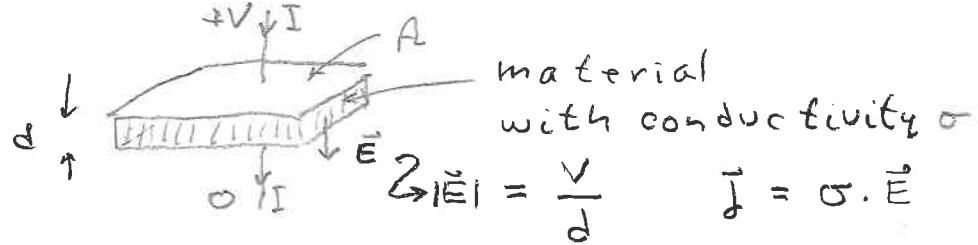 +V I
A
material
with conductivity σ
d
E⃗
0 I
|E⃗| = V/d J⃗ = σ · E⃗